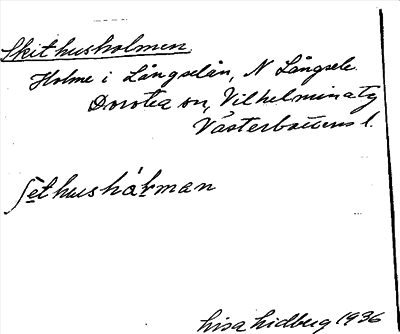 Skithusholmen.
Holme i Långselån, N Långsele.
Dorotea sn, Vilhelmina tg
Västerbottens l.
ʃethushǻɫman
Lisa Lidberg 1936